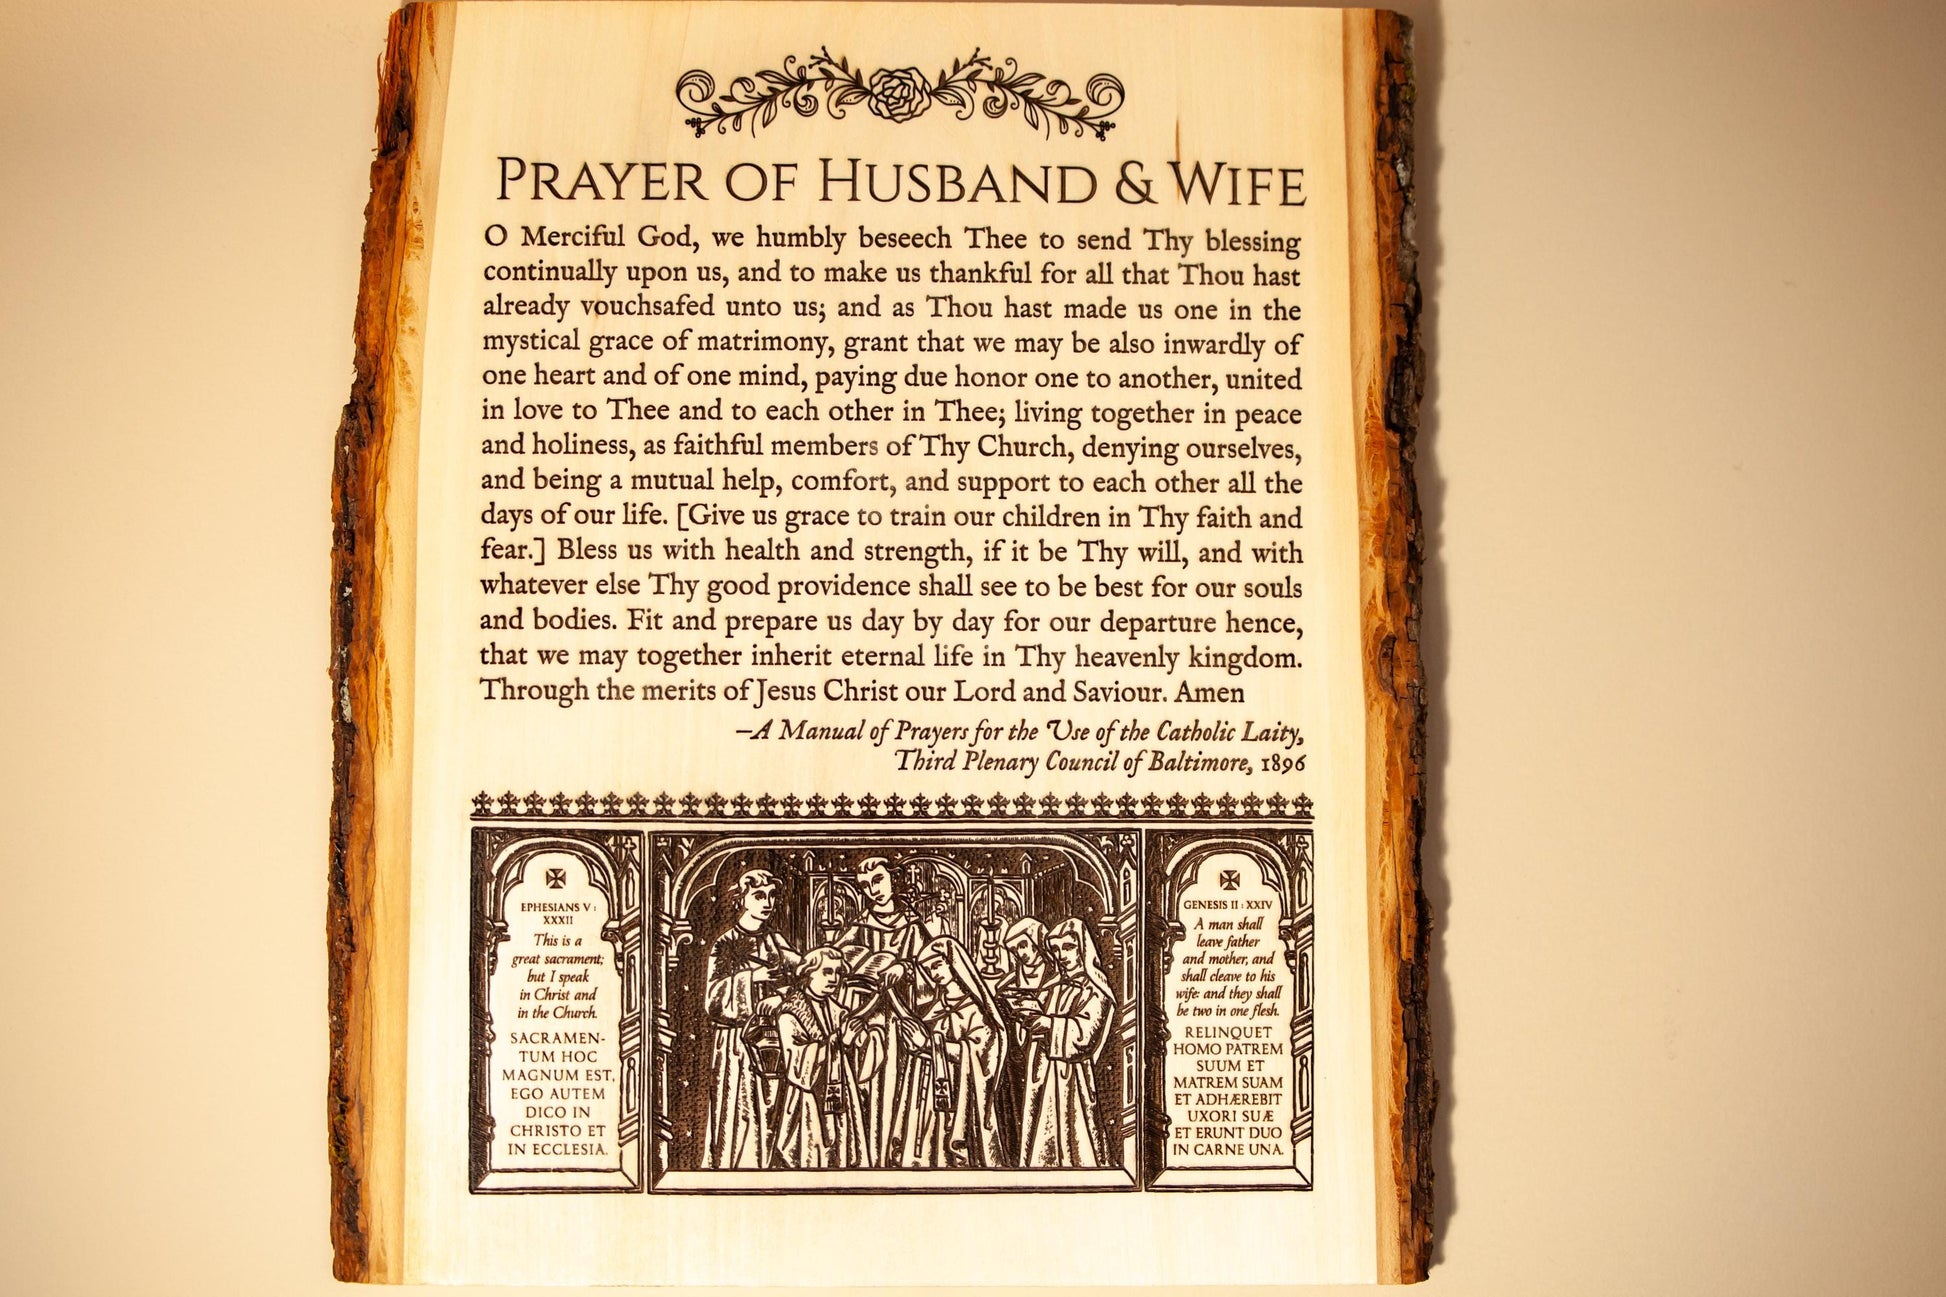 PRAYER OF HUSBAND & WIFE
O Merciful God, we humbly beseech Thee to send Thy blessing
continually upon us, and to make us thankful for all that Thou hast
already vouchsafed unto us; and as Thou hast made us one in the
mystical grace of matrimony, grant that we may be also inwardly of
one heart and of one mind, paying due honor one to another, united
in love to Thee and to each other in Thee; living together in peace
and holiness, as faithful members of Thy Church, denying ourselves,
and being a mutual help, comfort, and support to each other all the
days of our life. [Give us grace to train our children in Thy faith and
fear.] Bless us with health and strength, if it be Thy will, and with
whatever else Thy good providence shall see to be best for our souls
and bodies. Fit and prepare us day by day for our departure hence,
that we may together inherit eternal life in Thy heavenly kingdom.
Through the merits of Jesus Christ our Lord and Saviour. Amen
—A Manual of Prayers for the Use of the Catholic Laity,
Third Plenary Council of Baltimore, 1896
EPHESIANS V :
XXXII
This is a
great sacrament;
but I speak
in Christ and
in the Church.
SACRAMEN-
TUM HOC
MAGNUM EST,
EGO AUTEM
DICO IN
CHRISTO ET
IN ECCLESIA.
GENESIS II : XXIV
A man shall
leave father
and mother, and
shall cleave to his
wife: and they shall
be two in one flesh.
RELINQUET
HOMO PATREM
SUUM ET
MATREM SUAM
ET ADHÆREBIT
UXORI SUÆ
ET ERUNT DUO
IN CARNE UNA.